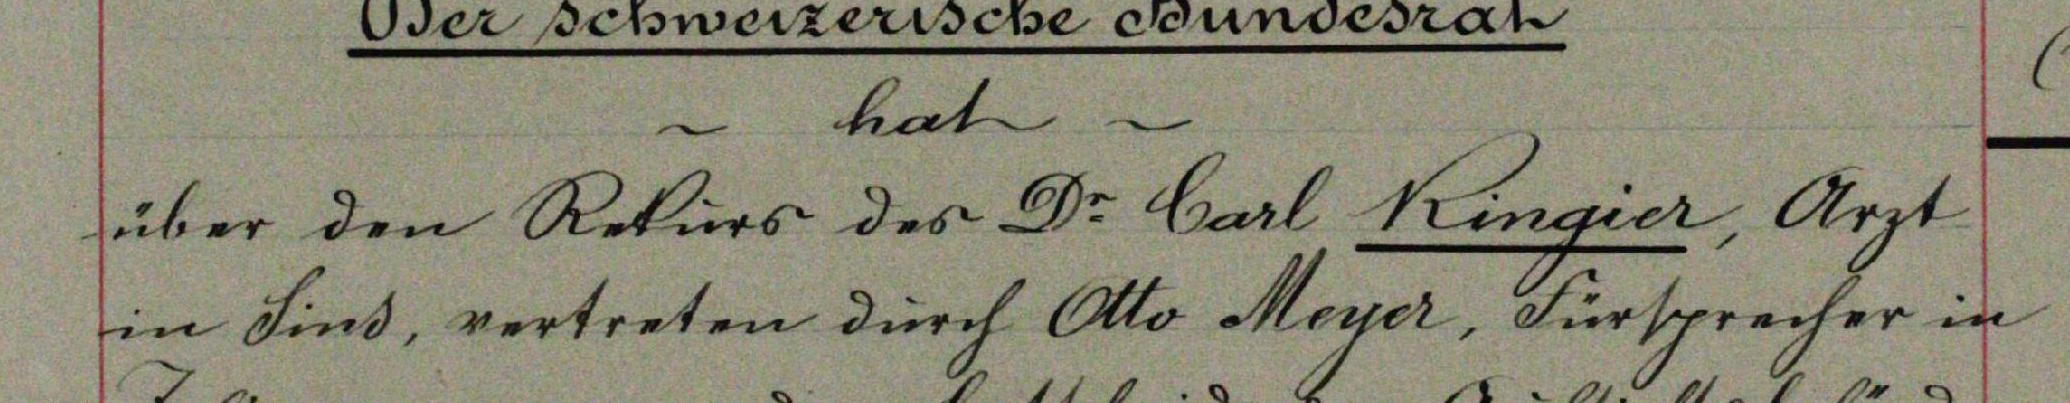 Der schweizerische Bundesrat
~ hat ~
über den Rekurs des Dr. Carl Ringier, Arzt
in Sins, vertreten durch Otto Meyer, Fürsprecher in